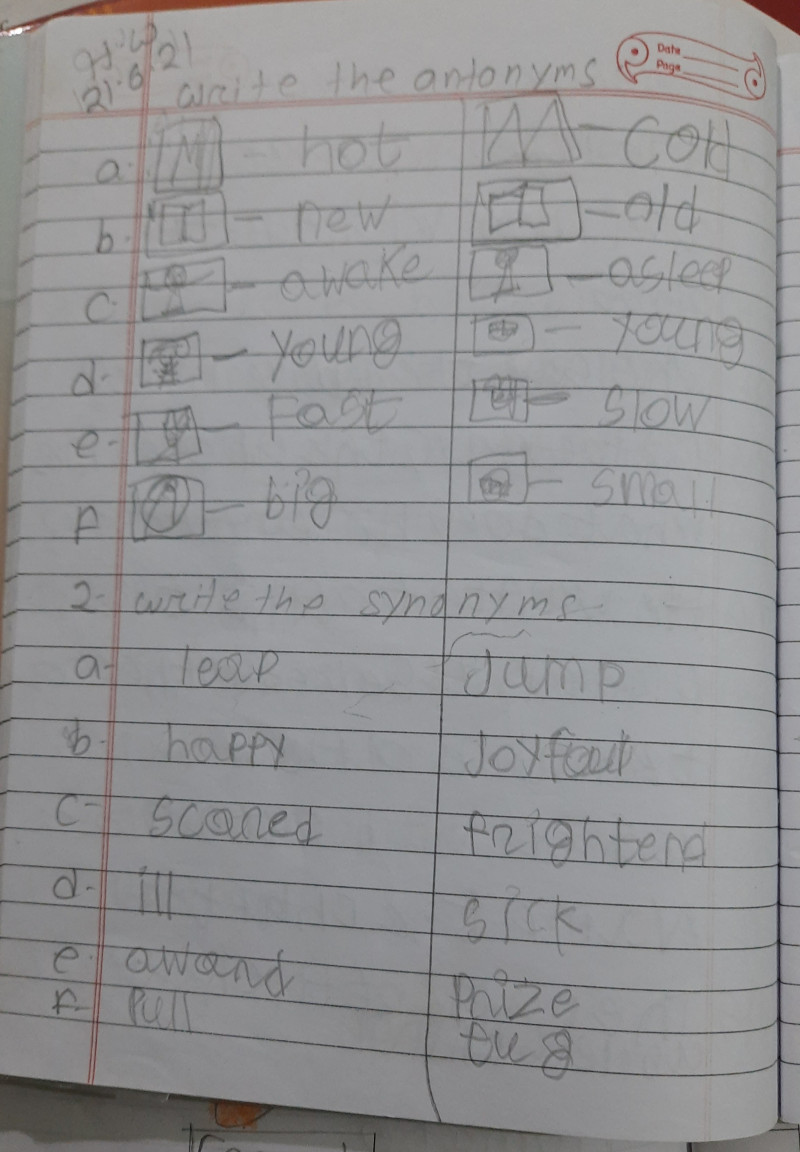 Date
Page
21.6.21
write the antonyms
a. - hot - cold
b. - new - old
c. - awake - asleep
d. - young - young
e. - Fast - slow
f - big - small
2- write the synonyms
a- leap Jump
b- happy Joyfoul
c- scared frightend
d- ill sick
e. award Prize
f. Pull tug